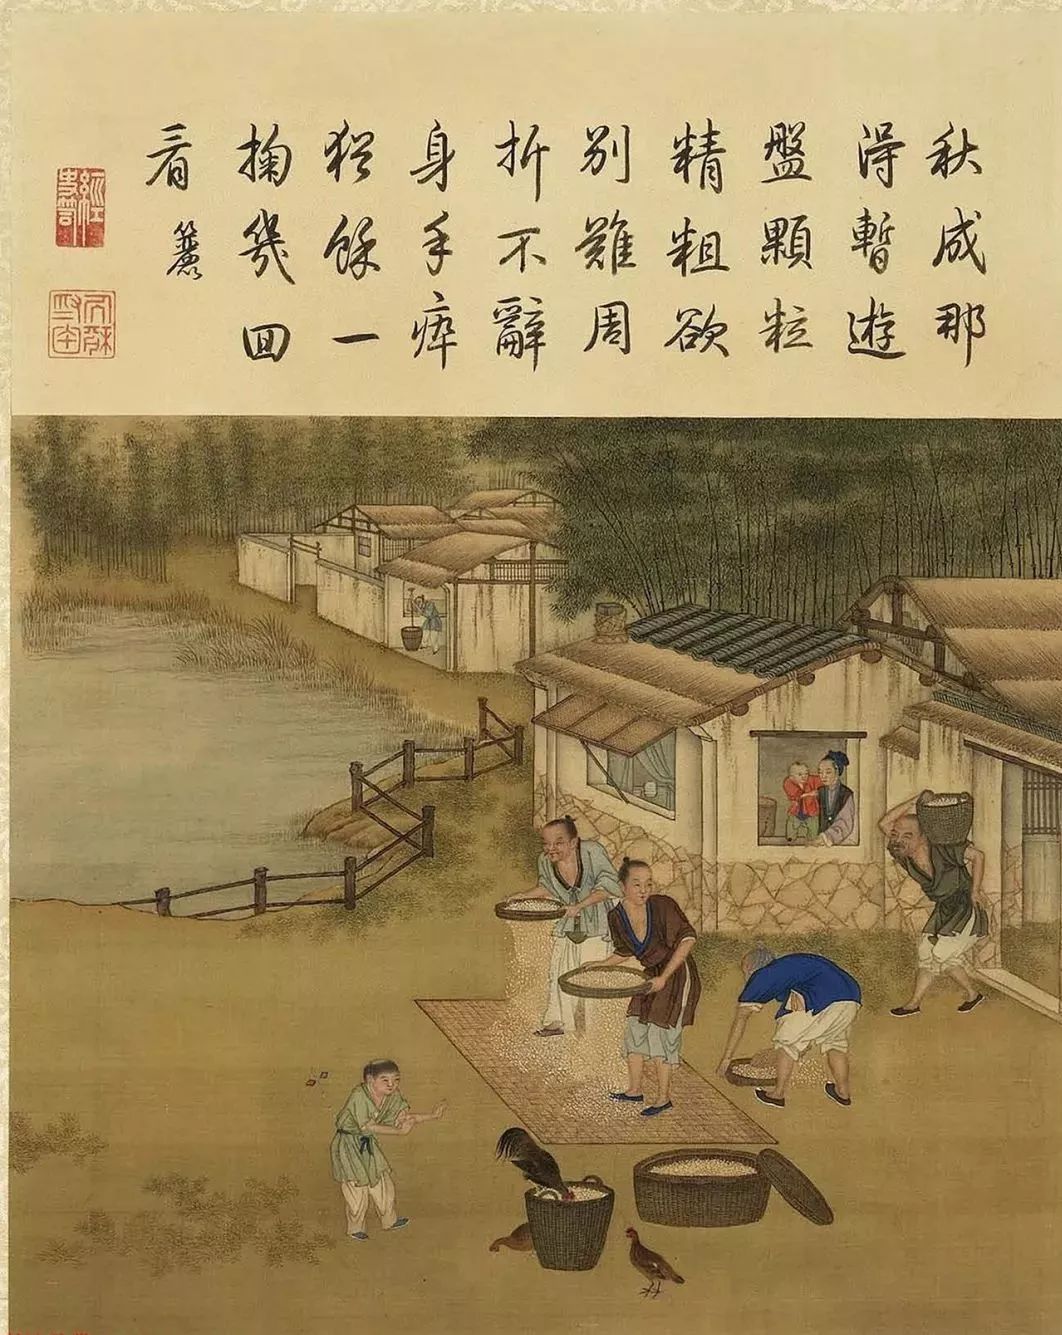 秋成那
得暫遊
盤顆粒
精粗欲
別難周
折不辭
身手瘁
猶餘一
掬幾回
看 簏